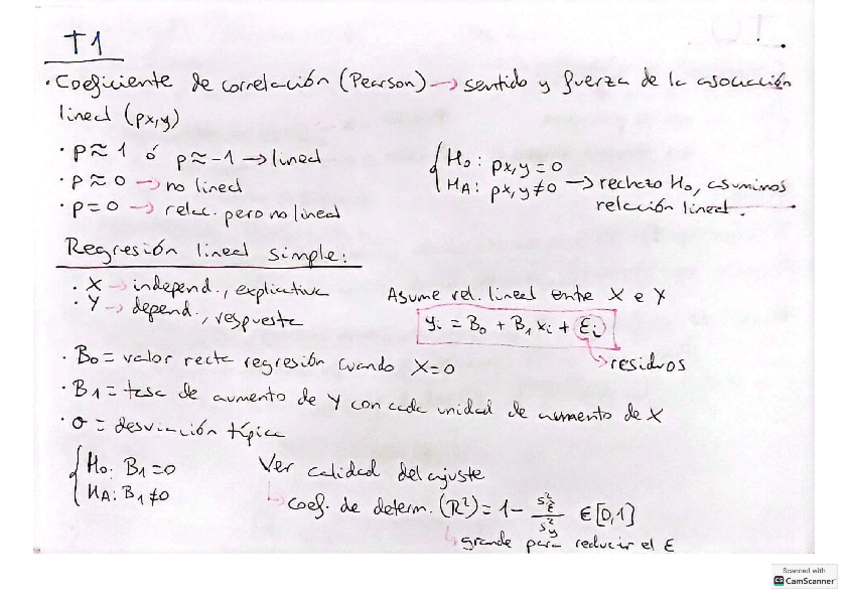 T1
· Coeficiente de correlación (Pearson) → sentido y fuerza de la asociación
lineal (ρx,y)
· ρ ≈ 1 ó ρ ≈ -1 → lineal
· ρ ≈ 0 → no lineal
· ρ = 0 → relac. pero no lineal
{ H₀: ρx,y = 0
HA: ρx,y ≠ 0 → rechazo H₀, asumimos
relación lineal.
Regresión lineal simple:
· X → independ., explicativa
· Y → depend., respuesta
Asume rel. lineal entre X e Y
yi = B₀ + B₁ xi + Ei
→ residuos
· B₀ = valor recta regresión cuando X=0
· B₁ = tasa de aumento de Y con cada unidad de aumento de X
· σ = desviación típica
{ H₀: B₁ = 0
HA: B₁ ≠ 0
Ver calidad del ajuste
↳ coef. de determ. (R²) = 1 - S²ε̂ / S²y ∈ [0,1]
↳ grande para reducir el E
Scanned with
CS CamScanner